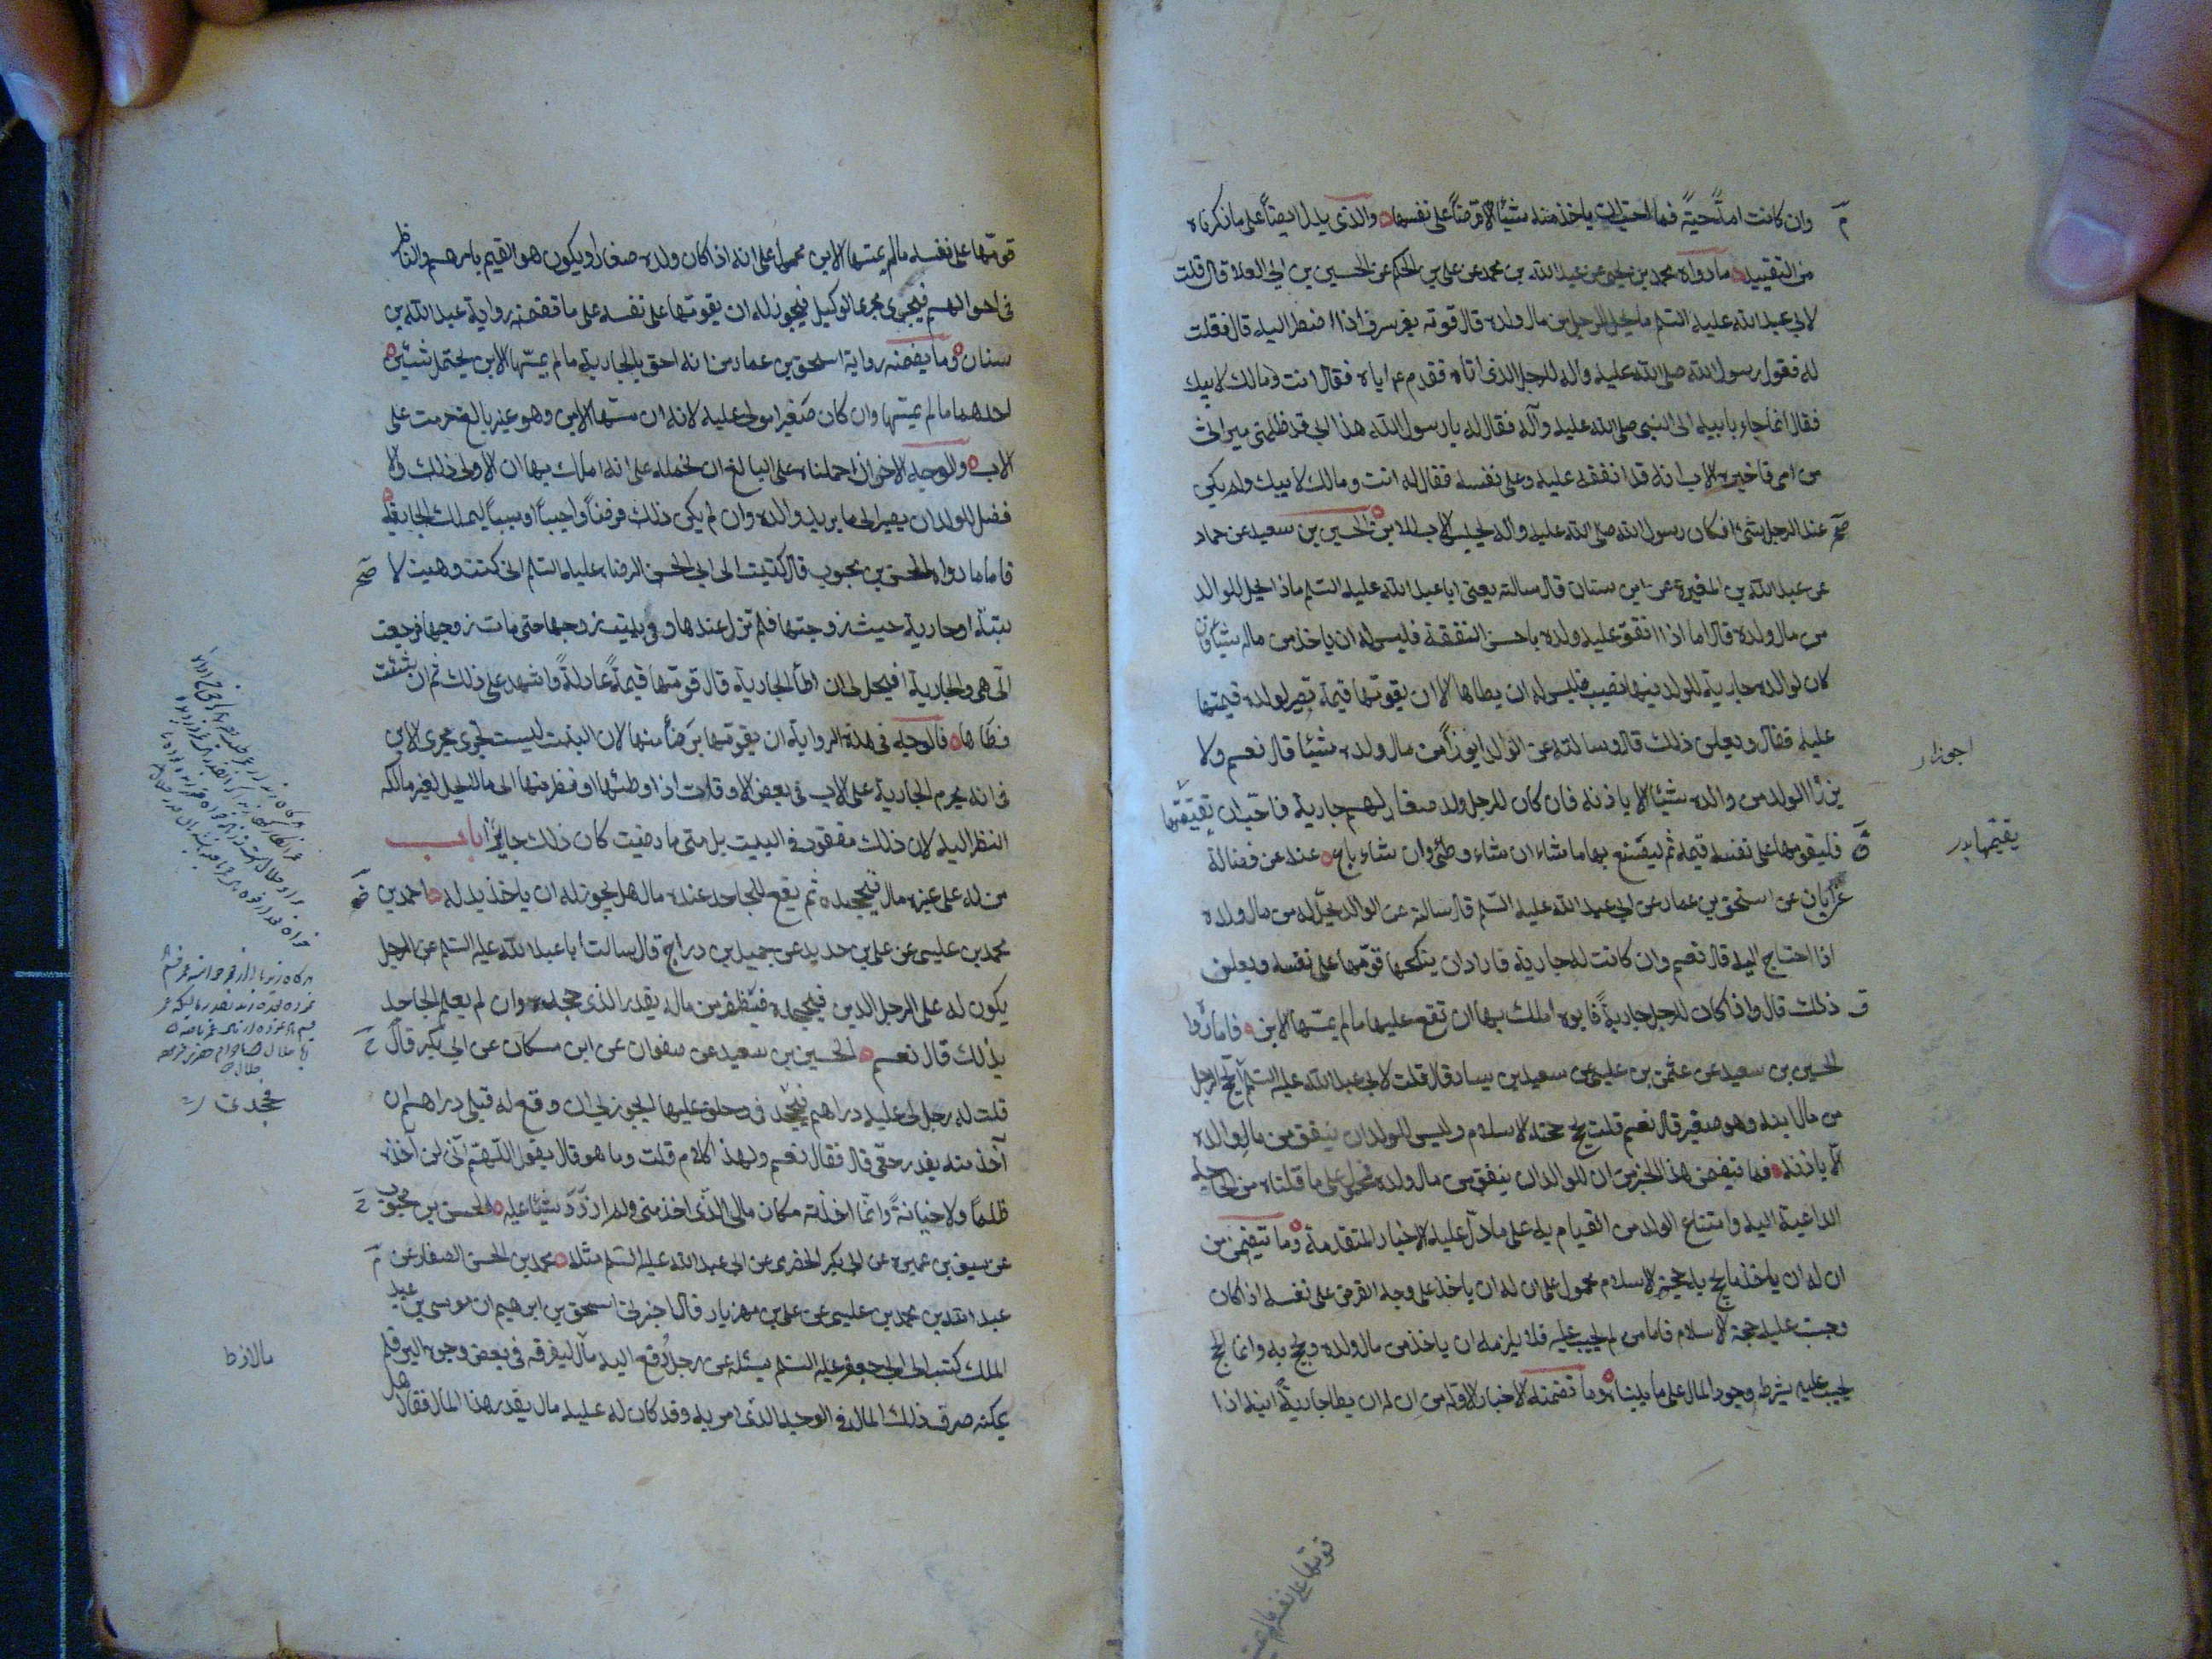 وان كانت امه حية فما احب ان ياخذ منه شيئا الا قرضاً على نفسها والذي يدل ايضاً على ما ذكرناه
من التقييد ما رواه محمد بن يحيى عن عبد الله بن محمد عن علي بن الحكم عن الحسين بن ابي العلا قال قلت
لابي عبد الله عليه السلم ما يحل للرجل من مال ولده قال قوته بغير سرف اذا اضطر اليه قال فقلت
له فقول رسول الله صلى الله عليه وآله للرجل الذي اتاه فقدم اباه فقال انت ومالك لابيك
فقال انما جاء بابيه الى النبي صلى الله عليه وآله فقال له يا رسول الله هذا ابي قد ظلمني ميراثي
من امي فاخبره الاب انه قد انفقه عليه وعلى نفسه فقال له انت ومالك لابيك ولم يكن
عند الرجل شئ افكان رسول الله صلى الله عليه وآله يحبس الاب للابن الحسين بن سعيد عن حماد
عن عبد الله بن المغيرة عن ابن سنان قال سالته يعني ابا عبد الله عليه السلم ماذا يحل للوالد
من مال ولده قال اما اذا انفق عليه ولده باحسن النفقة فليس له ان ياخذ من ماله شيئاً فان
كان لوالده جارية للولد فيها نصيب فليس له ان يطاها الا ان يقومها قيمة تصير لولده قيمتها
عليه فقال ويعلن ذلك قال وسالته عن الوالد ايرزأ من مال ولده شيئا قال نعم ولا
يرزأ الولد من والده شيئا الا باذنه فان كان للرجل ولد صغار لهم جارية فاحب ان يقتضها
فليقومها على نفسه قيمة ثم ليصنع بها ما شاء ان شاء وطئ وان شاء باع عنه عن فضالة
عن ابان عن اسحق بن عمار عن ابي عبد الله عليه السلم قال سالته عن الوالد يحل له من مال ولده
اذا احتاج اليه قال نعم وان كانت له جارية فاراد ان ينكحها قومها على نفسه ويعلن
ذلك قال واذا كان للرجل جارية فابوه املك بها ان تقع عليها ما لم يمسها الابن فاما ما روا
الحسين بن سعيد عن عثمن بن عليسى عن سعيد بن يسار قال قلت لابي عبد الله عليه السلم ايحج الرجل
من مال ابنه وهو صغير قال نعم قلت يحج حجة الاسلام وليس للولد ان ينفق من مال والده
الا باذنه فما تتضمن هذا الخبر من ان للوالد ان ينفق من مال ولده محمول على ما قلناه من الحاجة
الداعية اليه وامتناع الولد من القيام به على ما دل عليه الاخبار المتقدمة وما تتضمن من
ان له ان ياخذ ما يحج به حجة الاسلام محمول على ان له ان ياخذ على وجه القرض على نفسه اذا كان
وجبت عليه حجة الاسلام فاما من لم يجب عليه فلا يلزمه ان ياخذ من مال ولده ويحج به وانما يحج
يجب عليه بشرط وجود المال على ما بيناه وما تضمنته الاخبار الاوله من ان له ان يطا جارية ابنه اذا
قومها على نفسه ما لم يمسها الابن محمول على انه اذا كان ولده صغارا ويكون هو القيم بامرهم والناظر
في احوالهم فيجري مجرى الوكيل فيجوز له ان يقومها على نفسه على ما تضمنه رواية عبد الله بن
سنان وما يضمنه رواية اسحق بن عمار من انه احق بالجارية ما لم يمسها الابن يحتمل شيئين
احدهما ما لم يمسها وان كان صغيرا مولى عليه لانه ان مسها الابن وهو غير بالغ حرمت على
الاب والوجه الاخر ان اذا حملناه على البالغ ان نحمله على انه املك بها ان الاولى ذلك والا
فضل للولد ان يصير الى ما يريد والده وان لم يكن ذلك فرضاً واجباً او سبباً لتملك الجارية
فاما ما رواه الحسن بن محبوب قال كتبت الى ابي الحسن الرضا عليه السلم اني كنت وهبت لا
بنتي جارية حيث زوجتها فلم تزل عندها وفي بيت زوجها حتى مات زوجها فرجعت
الي هي والجارية افيحل لي ان اطأ الجارية قال قومها قيمة عادلة واشهد على ذلك ثم ان شئت
فطاها فالوجه في هذه الرواية ان يقومها برضاً منها لان البنت ليست تجري مجرى الابن
في انه يحرم الجارية على الاب في بعض الاوقات اذا وطئها او نظر منها الى ما لا يحل لغير مالكه
النظر اليه لان ذلك مفقود في البنت بل متى ما رضيت كان ذلك جايزاً باب
من له على غيره مال فيجحده ثم يقع للجاحد عنده مال هل يجوز له ان ياخذ بدله احمد بن
محمد بن عليسى عن علي بن حديد عن جميل بن دراج قال سالت ابا عبد الله عليه السلم عن الرجل
يكون له على الرجل الدين فيجحده فيظفر من ماله بقدر الذي جحده وان لم يعلم الجاحد
بذلك قال نعم الحسين بن سعيد عن صفوان عن ابن مسكان عن ابي بكر قال
قلت له رجل لي عليه دراهم فيجحدني وحلف عليها ايجوز لي ان وقع له قبلي دراهم ان
آخذ منه بقدر حقي قال فقال نعم ولهذا كلام قلت وما هو قال يقول اللهم اني لن آخذه
ظلماً ولا خيانةً وانما اخذته مكان مالي الذي اخذ مني ولم ازدد شيئاً عليه الحسن بن محبوب
عن سيف بن عميرة عن ابي بكر الحضرمي عن ابي عبد الله عليه السلم مثله محمد بن الحسن الصفار عن
عبد الله بن محمد بن عليسى عن علي بن مهزيار قال اخبرني اسحق بن ابرهيم ان موسى بن عبد
الملك كتب الى ابي جعفر عليه السلم يسئله عن رجل دفع اليه مال ليفرقه في بعض وجوه البر فلم
يمكنه صرف ذلك المال في الوجه الذي امر به وقد كان له عليه مال بقدر هذا المال فقال هل
قومها على نفسه ما لم